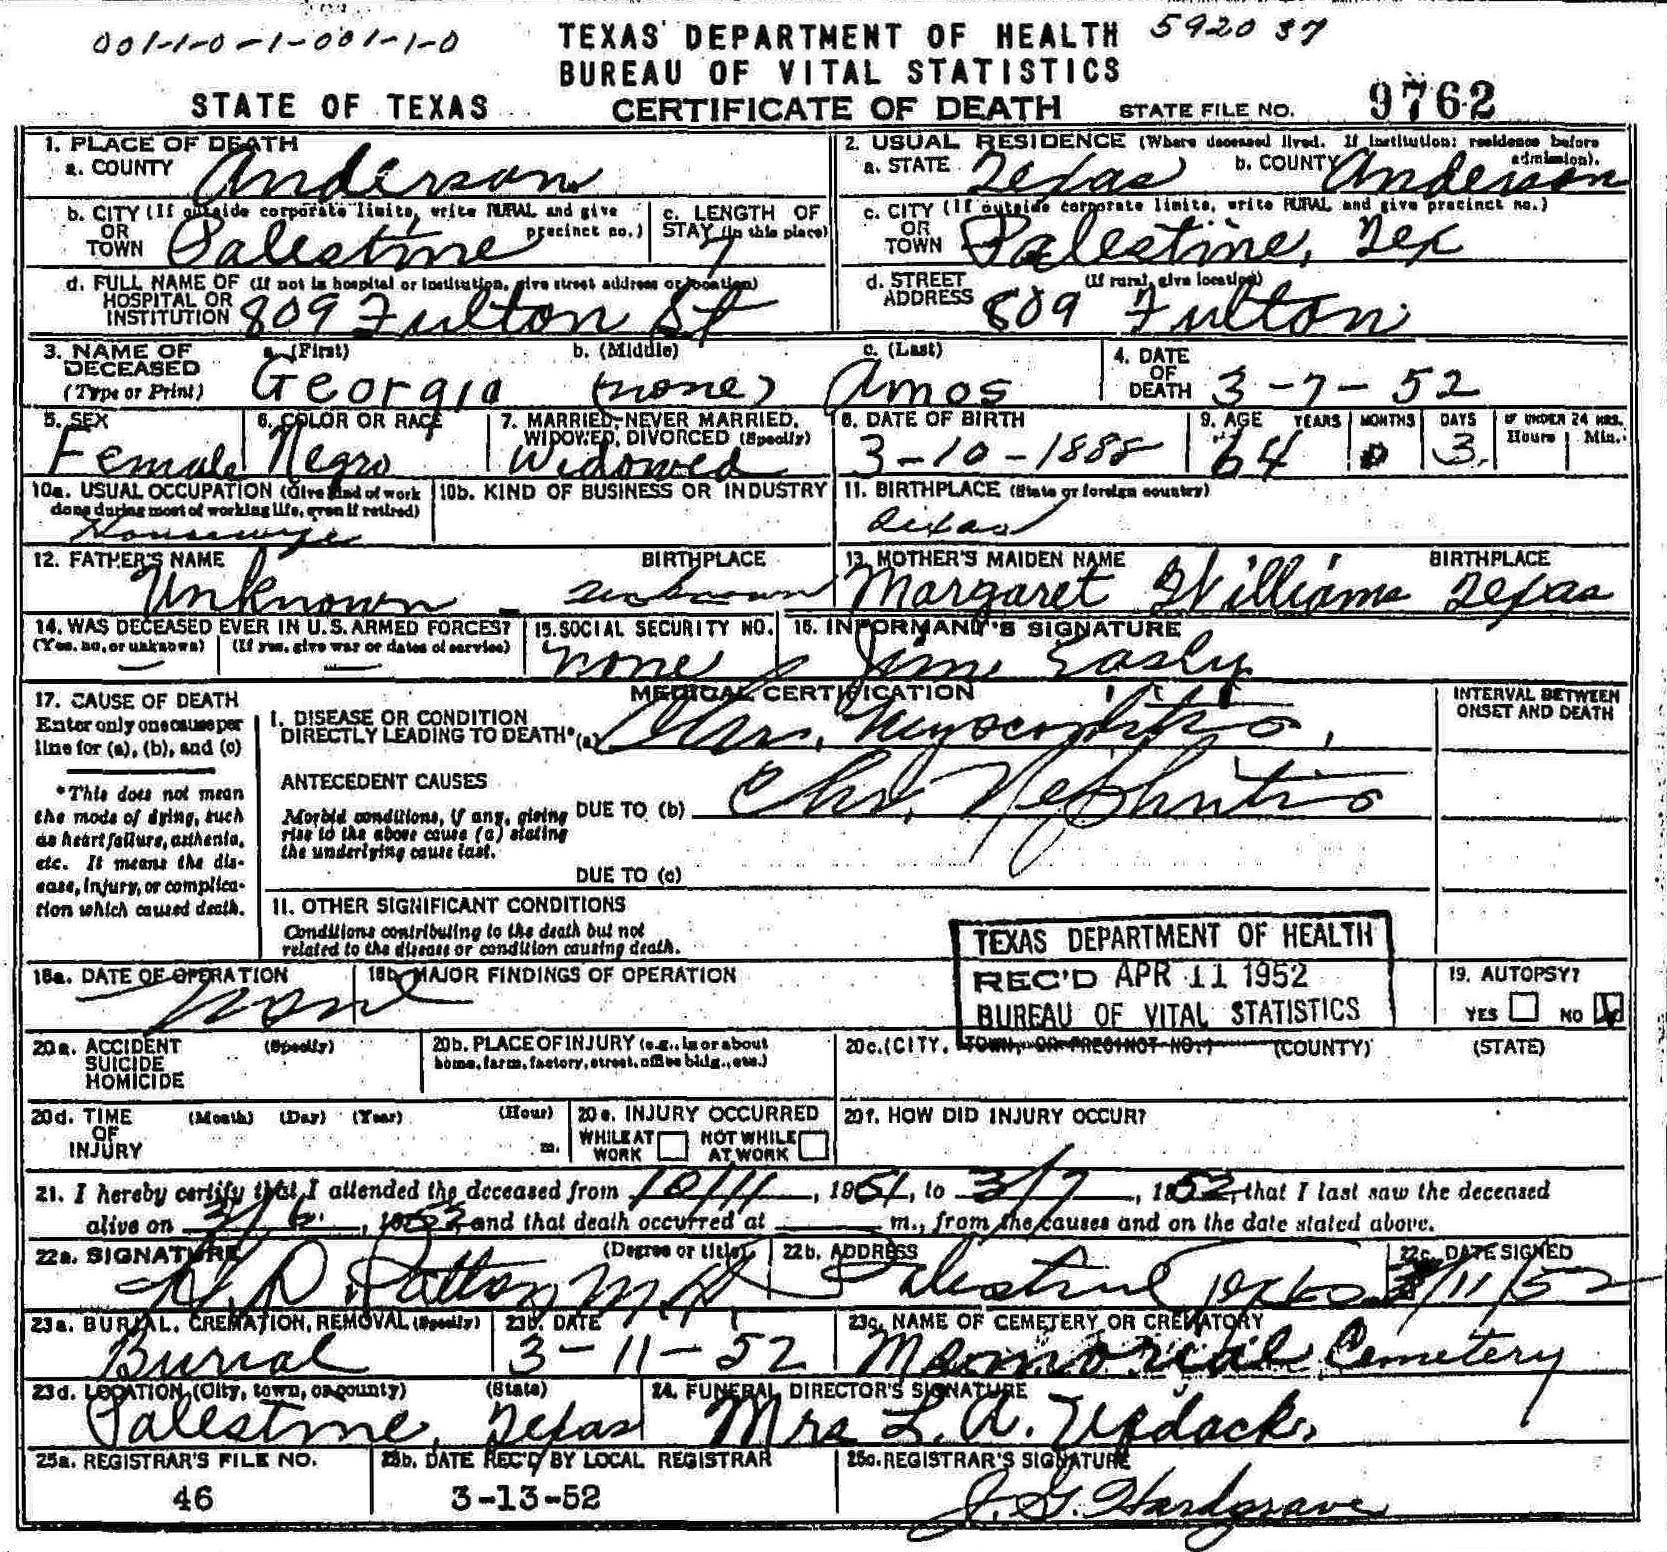 001-1-0-1-001-1-0
TEXAS DEPARTMENT OF HEALTH 5920 37
BUREAU OF VITAL STATISTICS
STATE OF TEXAS CERTIFICATE OF DEATH STATE FILE NO. 9762
1. PLACE OF DEATH
a. COUNTY Anderson
2. USUAL RESIDENCE (Where deceased lived. If institution: residence before admission).
a. STATE Texas b. COUNTY Anderson
b. CITY (If outside corporate limits, write RURAL and give precinct no.)
OR
TOWN Palestine
c. LENGTH OF
STAY (in this place) 7
c. CITY (If outside corporate limits, write RURAL and give precinct no.)
OR
TOWN Palestine, Tex
d. FULL NAME OF (If not in hospital or institution, give street address or location)
HOSPITAL OR
INSTITUTION 809 Fulton St
d. STREET (If rural, give location)
ADDRESS 809 Fulton
3. NAME OF DECEASED (Type or Print)
a. (First) b. (Middle) c. (Last)
Georgia (none) Amos
4. DATE OF DEATH 3-7-52
5. SEX
Female
6. COLOR OR RACE
Negro
7. MARRIED, NEVER MARRIED,
WIDOWED, DIVORCED (Specify)
Widowed
8. DATE OF BIRTH
3-10-1888
9. AGE YEARS MONTHS DAYS IF UNDER 24 HRS.
Hours Min.
64 0 3
10a. USUAL OCCUPATION (Give kind of work
done during most of working life, even if retired)
Housewife
10b. KIND OF BUSINESS OR INDUSTRY
11. BIRTHPLACE (State or foreign country)
Texas
12. FATHER'S NAME BIRTHPLACE
Unknown - unknown
13. MOTHER'S MAIDEN NAME BIRTHPLACE
Margaret Williams Texas
14. WAS DECEASED EVER IN U.S. ARMED FORCES?
(Yes, no, or unknown) (If yes, give war or dates of service)
— —
15. SOCIAL SECURITY NO.
none
16. INFORMANT'S SIGNATURE
Jim Easly
MEDICAL CERTIFICATION
17. CAUSE OF DEATH
Enter only one cause per
line for (a), (b), and (c)
*This does not mean
the mode of dying, such
as heart failure, asthenia,
etc. It means the dis-
ease, injury, or complica-
tion which caused death.
I. DISEASE OR CONDITION
DIRECTLY LEADING TO DEATH* (a) Chr. Myocarditis,
ANTECEDENT CAUSES
Morbid conditions, if any, giving
rise to the above cause (a) stating
the underlying cause last.
DUE TO (b) Chr. Nephritis
DUE TO (c)
INTERVAL BETWEEN
ONSET AND DEATH
II. OTHER SIGNIFICANT CONDITIONS
Conditions contributing to the death but not
related to the disease or condition causing death.
TEXAS DEPARTMENT OF HEALTH
REC'D APR 11 1952
BUREAU OF VITAL STATISTICS
18a. DATE OF OPERATION
None
18b. MAJOR FINDINGS OF OPERATION
19. AUTOPSY?
YES NO
20a. ACCIDENT (Specify)
SUICIDE
HOMICIDE
20b. PLACE OF INJURY (e.g., in or about
home, farm, factory, street, office bldg., etc.)
20c. (CITY, TOWN, OR PRECINCT NO.) (COUNTY) (STATE)
20d. TIME (Month) (Day) (Year) (Hour)
OF
INJURY m.
20e. INJURY OCCURRED
WHILE AT WORK NOT WHILE AT WORK
20f. HOW DID INJURY OCCUR?
21. I hereby certify that I attended the deceased from 10/11, 1951, to 3/7, 1952, that I last saw the deceased
alive on 3/6, 1952 and that death occurred at m., from the causes and on the date stated above.
22a. SIGNATURE (Degree or title)
Patton M.D.
22b. ADDRESS
Palestine Texas
22c. DATE SIGNED
3/11/52
23a. BURIAL, CREMATION, REMOVAL (Specify)
Burial
23b. DATE
3-11-52
23c. NAME OF CEMETERY OR CREMATORY
Memorial Cemetery
23d. LOCATION (City, town, or county) (State)
Palestine, Texas
24. FUNERAL DIRECTOR'S SIGNATURE
Mrs L. A.
25a. REGISTRAR'S FILE NO.
46
25b. DATE REC'D BY LOCAL REGISTRAR
3-13-52
25c. REGISTRAR'S SIGNATURE
J. G. Hardgrave